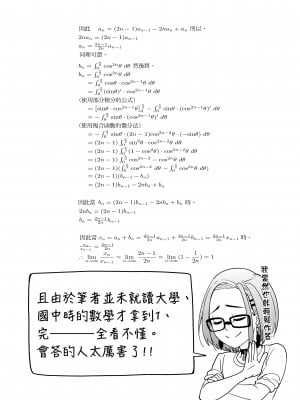 因此　a_n = (2n − 1)a_{n−1} − 2na_n + a_n 所以，
2na_n = (2n − 1)a_{n−1}
a_n = \frac{2n−1}{2n} a_{n−1}
同理可證，
b_n = ∫_0^{\frac{π}{2}} cos^{2n}θ dθ 然後將，
b_n = ∫_0^{\frac{π}{2}} cos^{2n}θ dθ
= ∫_0^{\frac{π}{2}} cosθ · cos^{2n−1}θ dθ
= ∫_0^{\frac{π}{2}} (sinθ)′ · cos^{2n−1}θ dθ
(使用部分積分公式)
= [sinθ · cos^{2n−1}θ]_0^{\frac{π}{2}} − ∫_0^{\frac{π}{2}} sinθ · (cos^{2n−1}θ)′ dθ
= − ∫_0^{\frac{π}{2}} sinθ · (cos^{2n−1}θ)′ dθ
(使用複合函數的微分法)
= − ∫_0^{\frac{π}{2}} sinθ · (2n − 1)cos^{2n−2}θ · (−sinθ) dθ
= (2n − 1) ∫_0^{\frac{π}{2}} sin²θ · cos^{2n−2}θ dθ
= (2n − 1) ∫_0^{\frac{π}{2}} (1 − cos²θ) · cos^{2n−2}θ dθ
= (2n − 1) ∫_0^{\frac{π}{2}} cos^{2n−2} − cos^{2n}θ dθ
= (2n − 1)(∫_0^{\frac{π}{2}} cos^{2n−2}θ dθ − ∫_0^{\frac{π}{2}} cos^{2n}θ dθ)
= (2n − 1)(b_{n−1} − b_n)
= (2n − 1)b_{n−1} − 2nb_n + b_n
因此當 b_n = (2n − 1)b_{n−1} − 2nb_n + b_n 時，
2nb_n = (2n − 1)b_{n−1}
b_n = \frac{2n−1}{2n} b_{n−1}
因此當 x_n = a_n + b_n = \frac{2n−1}{2n} a_{n−1} + \frac{2n−1}{2n} b_{n−1} = \frac{2n−1}{2n} x_{n−1} 時，
\frac{x_n}{x_{n−1}} = \frac{2n−1}{2n}
∴ lim_{n→∞} \frac{x_n}{x_{n−1}} = lim_{n→∞} \frac{2n − 1}{2n} = lim_{n→∞} (1 − \frac{1}{2n}) = 1
且由於筆者並未就讀大學、
國中時的數學才拿到1、
完————全看不懂。
會答的人太厲害了!!